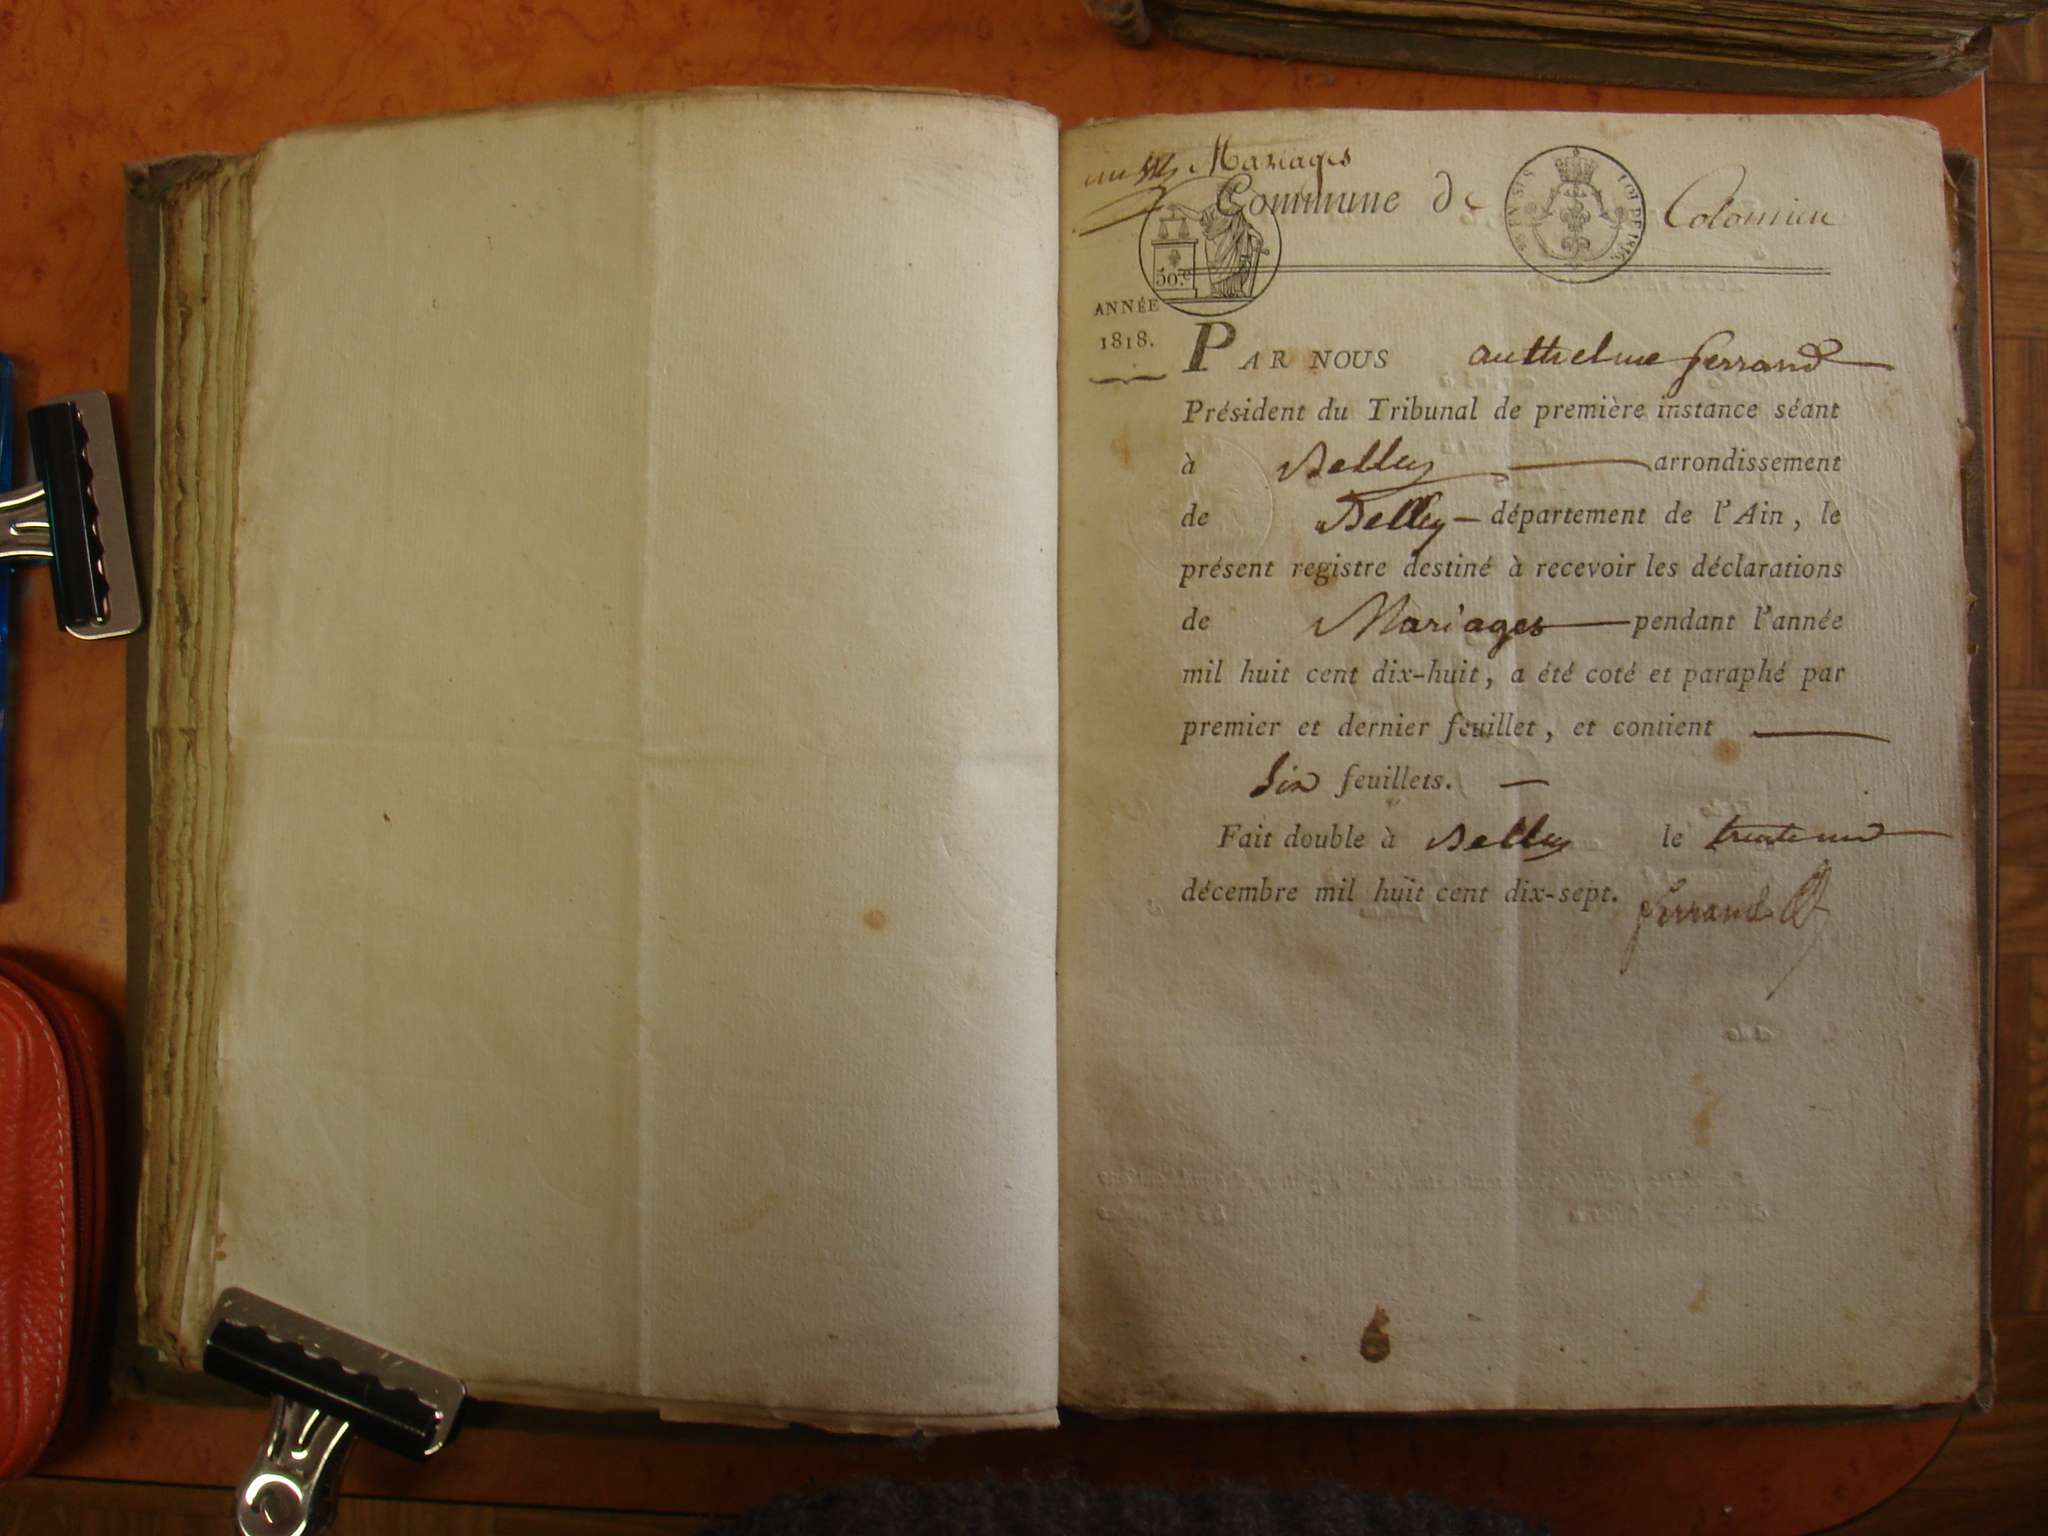 Mariages
Commune de Colomieu
50.c
LOI DE 1816.
ANNÉE
1818.
PAR NOUS anthelme ferrand
Président du Tribunal de première instance séant
à Belley arrondissement
de Belley département de l'Ain, le
présent registre destiné à recevoir les déclarations
de Mariages pendant l'année
mil huit cent dix-huit, a été coté et paraphé par
premier et dernier feuillet, et contient
Six feuillets.
Fait double à Belley le trente un
décembre mil huit cent dix-sept. ferrand